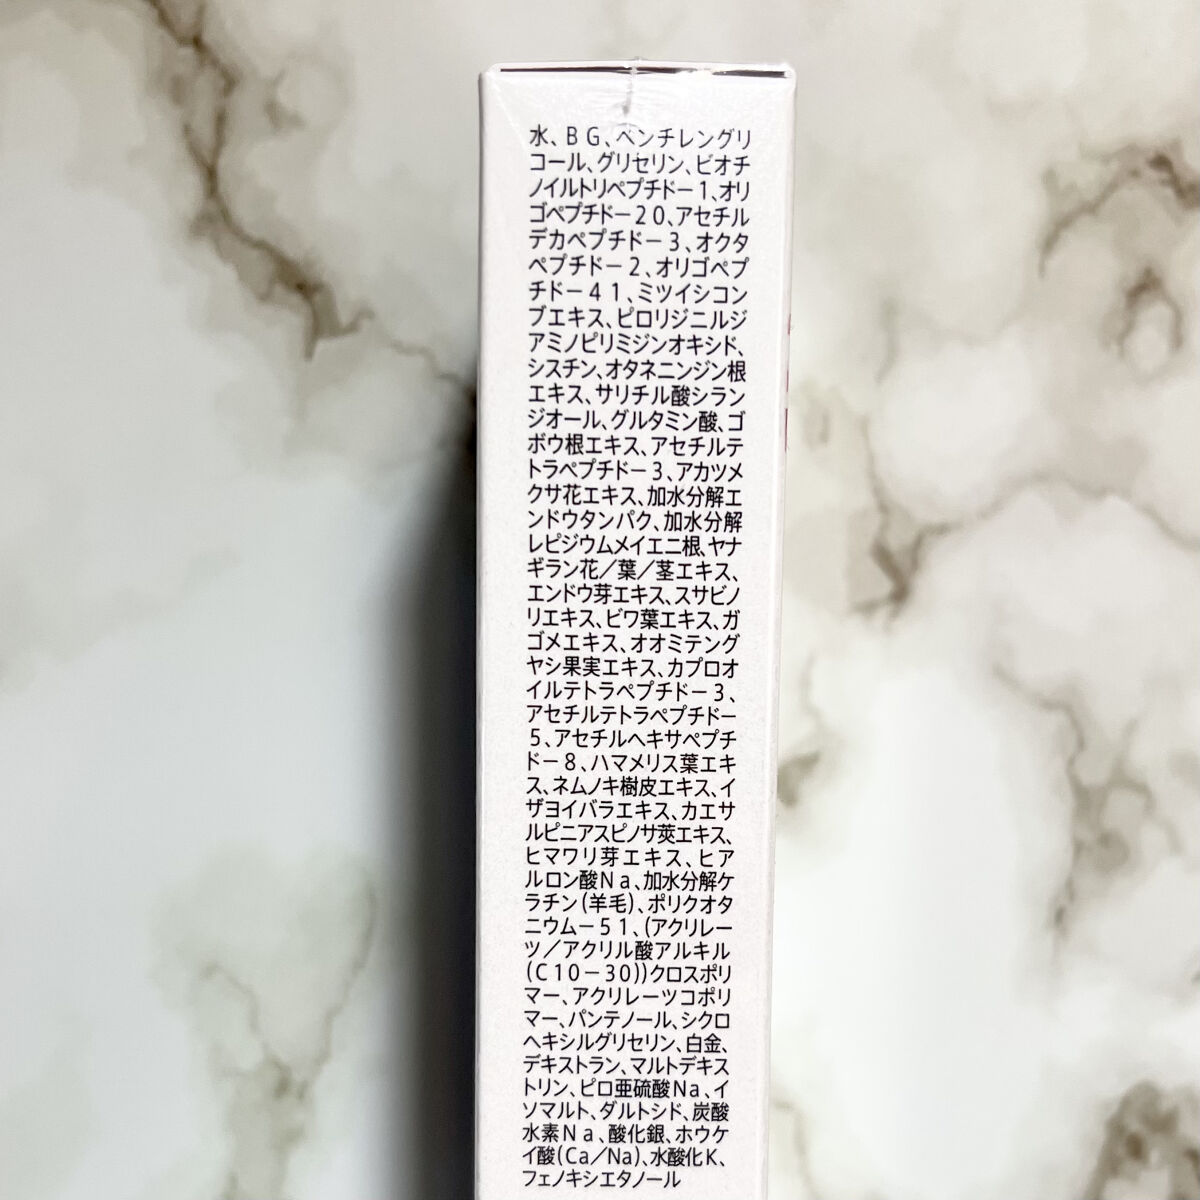 水、BG、ペンチレングリ
コール、グリセリン、ビオチ
ノイルトリペプチド－1、オリ
ゴペプチド－20、アセチル
デカペプチド－3、オクタ
ペプチド－2、オリゴペプ
チド－41、ミツイシコン
ブエキス、ピロリジニルジ
アミノピリミジンオキシド、
シスチン、オタネニンジン根
エキス、サリチル酸シラン
ジオール、グルタミン酸、ゴ
ボウ根エキス、アセチルテ
トラペプチド－3、アカツメ
クサ花エキス、加水分解エ
ンドウタンパク、加水分解
レピジウムメイエニ根、ヤナ
ギラン花／葉／茎エキス、
エンドウ芽エキス、スサビノ
リエキス、ビワ葉エキス、ガ
ゴメエキス、オオミテング
ヤシ果実エキス、カプロオ
イルテトラペプチド－3、
アセチルテトラペプチド－
5、アセチルヘキサペプチ
ド－8、ハマメリス葉エキ
ス、ネムノキ樹皮エキス、イ
ザヨイバラエキス、カエサ
ルピニアスピノサ莢エキス、
ヒマワリ芽エキス、ヒア
ルロン酸Na、加水分解ケ
ラチン(羊毛)、ポリクオタ
ニウム－51、(アクリレー
ツ／アクリル酸アルキル
(C10－30))クロスポリ
マー、アクリレーツコポリ
マー、パンテノール、シクロ
ヘキシルグリセリン、白金、
デキストラン、マルトデキス
トリン、ピロ亜硫酸Na、イ
ソマルト、ダルトシド、炭酸
水素Na、酸化銀、ホウケ
イ酸(Ca／Na)、水酸化K、
フェノキシエタノール